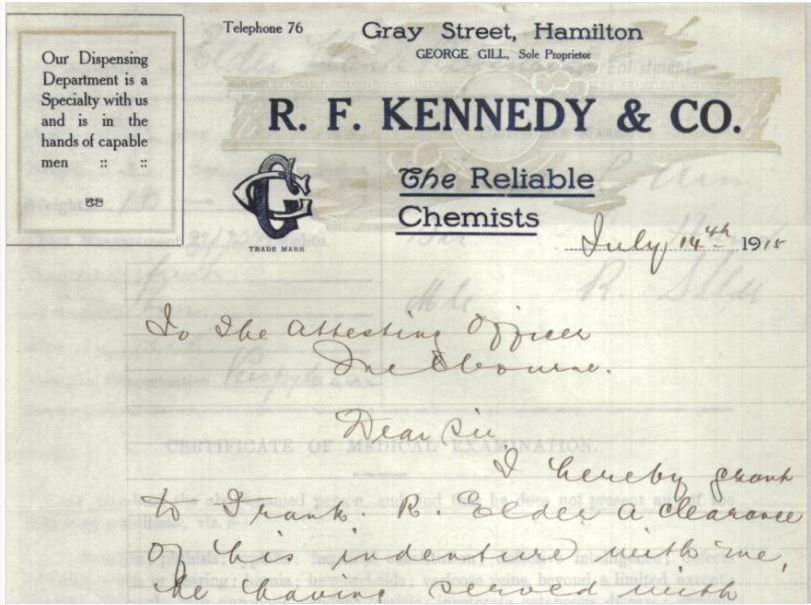 Our Dispensing
Department is a
Specialty with us
and is in the
hands of capable
men :: ::
Telephone 76
Gray Street, Hamilton
GEORGE GILL, Sole Proprietor
R. F. KENNEDY & CO.
The Reliable
Chemists
TRADE MARK
July 14th 1915
To The Attesting Officer
Melbourne.
Dear Sir
I hereby grant
to Frank. R. Elder a clearance
of his indenture with me,
he having served with
CERTIFICATE OF MEDICAL EXAMINATION.